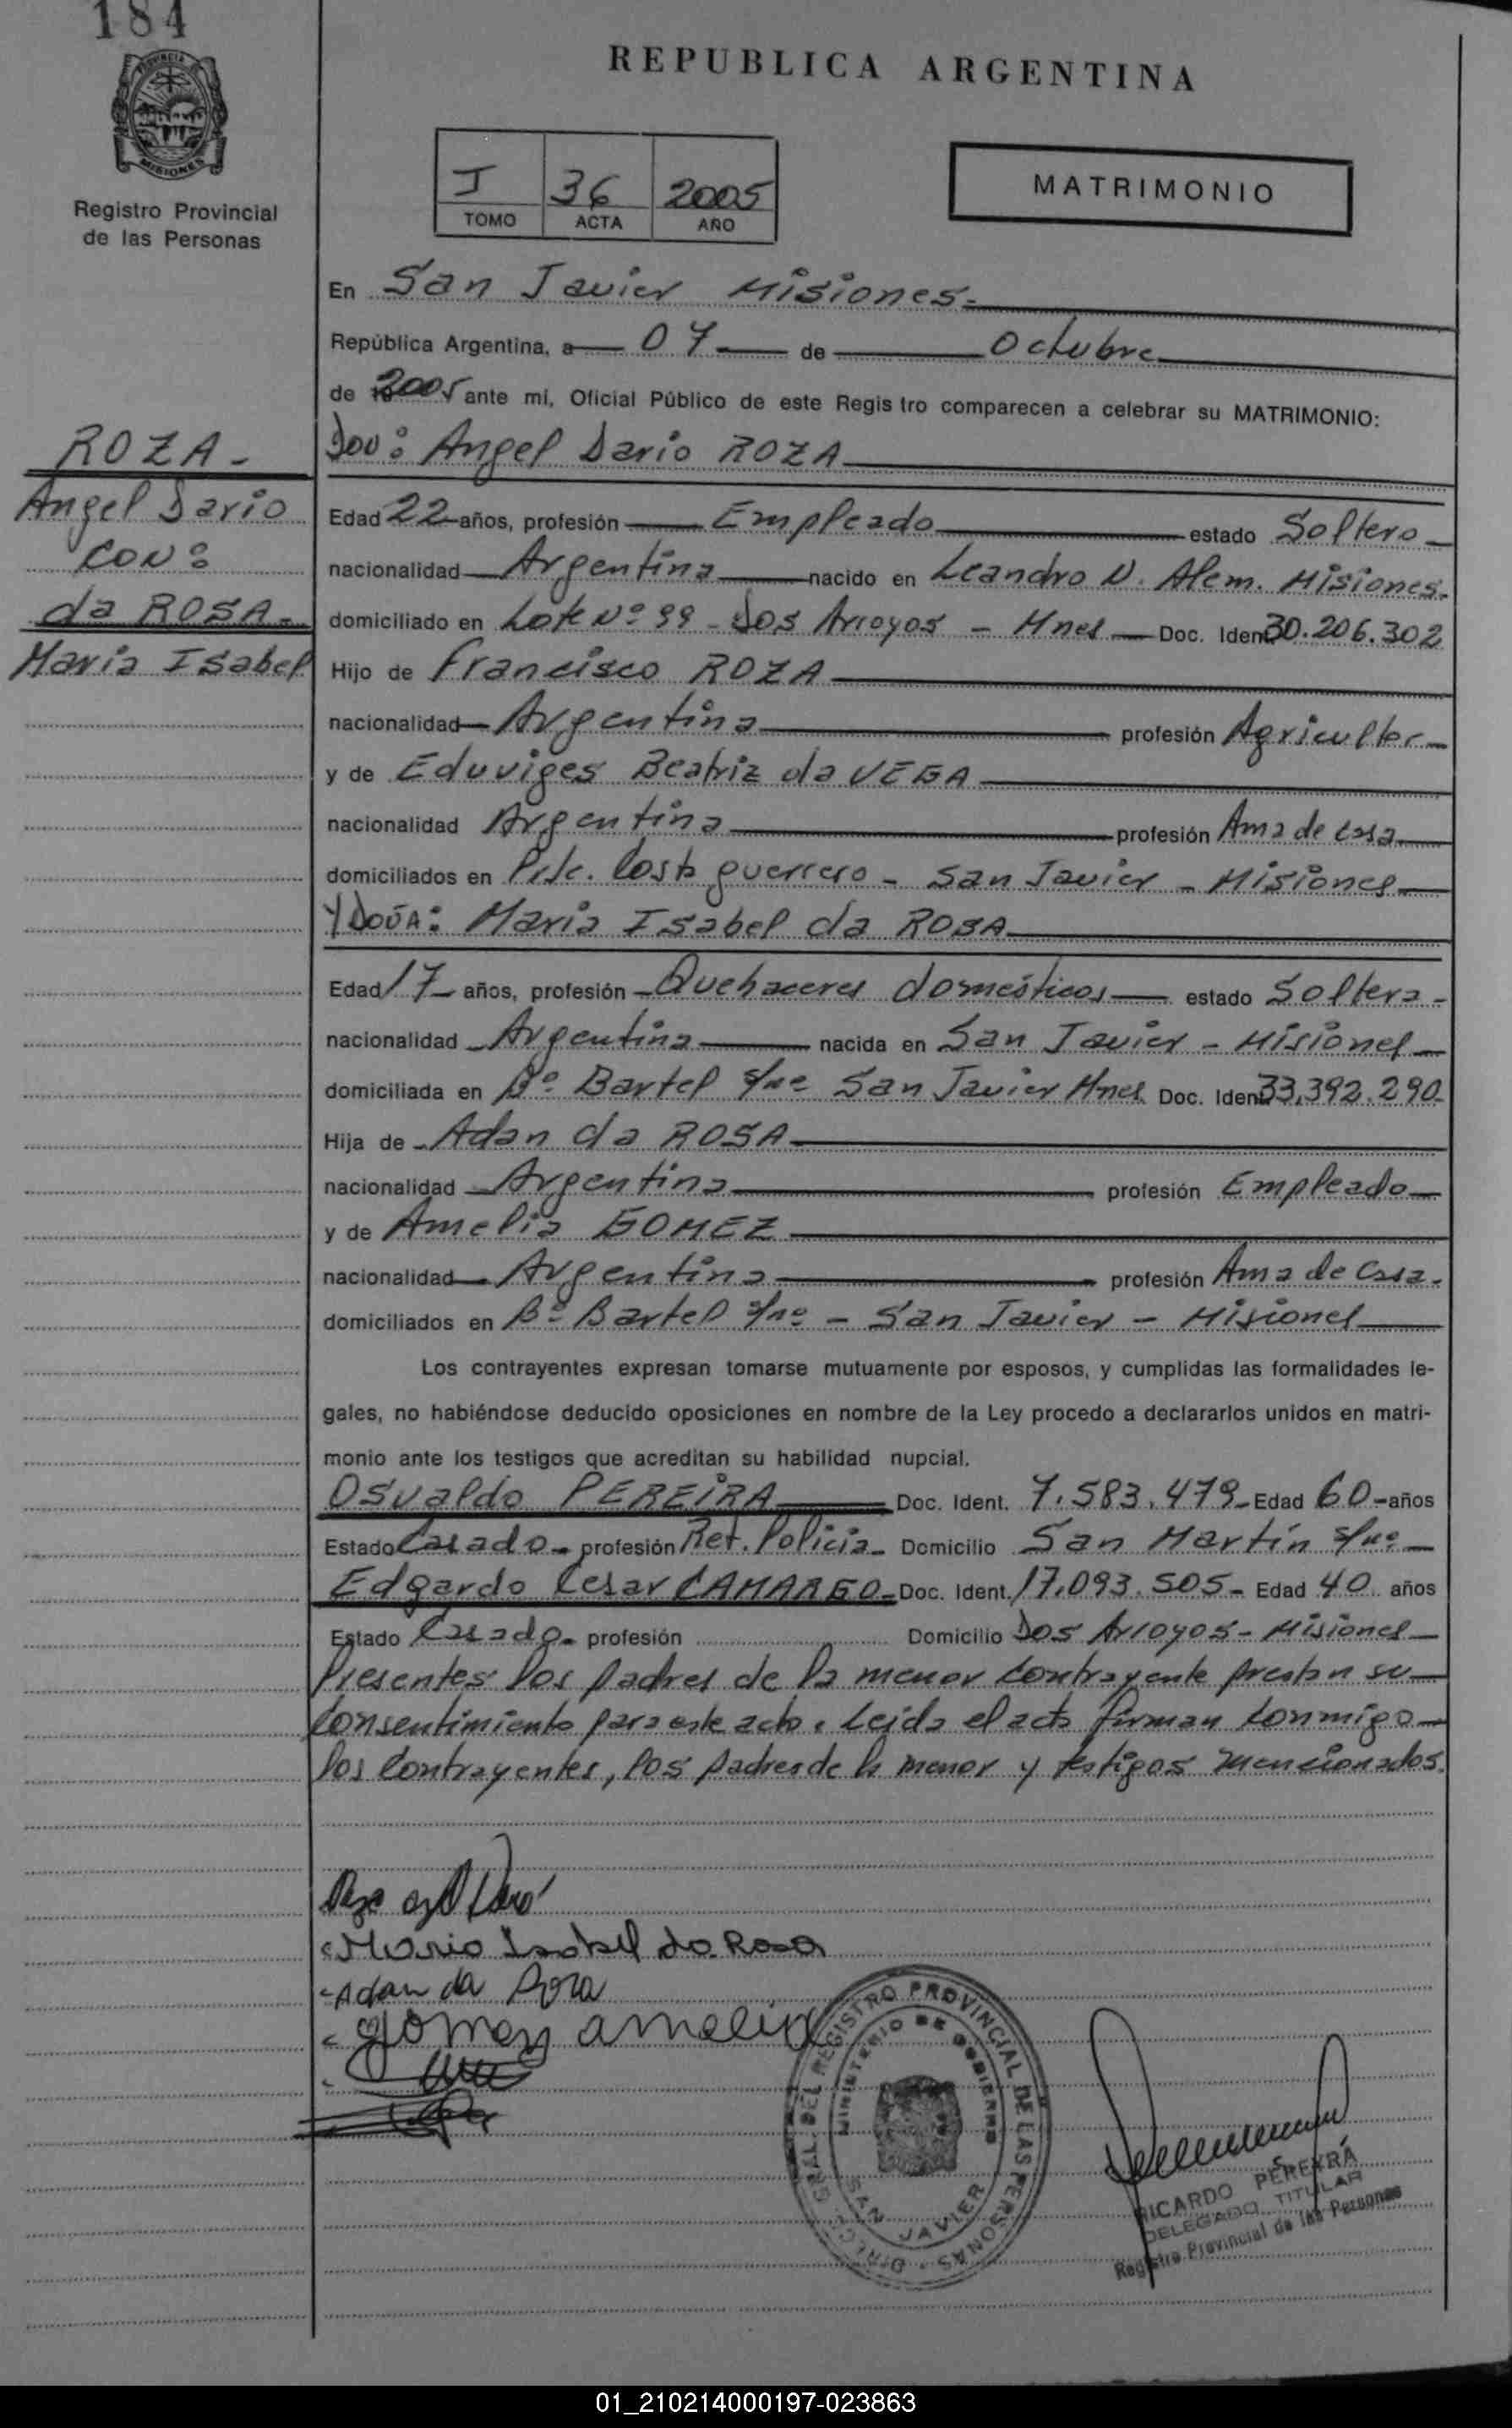 184
PROVINCIA
MISIONES
Registro Provincial
de las Personas
REPUBLICA ARGENTINA
I 36 2005
TOMO ACTA AÑO
MATRIMONIO
En San Javier Misiones.
República Argentina, a 07 de Octubre
de 2005 ante mi, Oficial Público de este Regis tro comparecen a celebrar su MATRIMONIO:
ROZA -
Angel Dario
CON:
da ROSA -
Maria Isabel
DON: Angel Dario ROZA
Edad 22 años, profesión Empleado estado Soltero
nacionalidad Argentina nacido en Leandro N. Alem. Misiones.
domiciliado en Lote Nº 99 - Dos Arroyos - Mnes Doc. Ident 30.206.302
Hijo de Francisco ROZA
nacionalidad Argentina profesión Agricultor
y de Eduviges Beatriz da VEGA
nacionalidad Argentina profesión Ama de casa
domiciliados en Costa guerrero - San Javier - Misiones
Y DOÑA: Maria Isabel da ROSA
Edad 17 años, profesión Quehaceres domésticos estado Soltera -
nacionalidad Argentina nacida en San Javier - Misiones
domiciliada en Bº Bartel s/nº San Javier Mnes Doc. Ident 33.392.290
Hija de Adan da ROSA
nacionalidad Argentina profesión Empleado
y de Amelia GOMEZ
nacionalidad Argentina profesión Ama de Casa.
domiciliados en Bº Bartel s/nº - San Javier - Misiones
Los contrayentes expresan tomarse mutuamente por esposos, y cumplidas las formalidades le-
gales, no habiéndose deducido oposiciones en nombre de la Ley procedo a declararlos unidos en matri-
monio ante los testigos que acreditan su habilidad nupcial.
Osvaldo PEREIRA Doc. Ident. 7.583.479 Edad 60 años
Estado Casado profesión Ret. Policia Domicilio San Martín s/nº
Edgardo Cesar CAMARGO Doc. Ident. 17.093.505 Edad 40 años
Estado Casado profesión Domicilio Dos Arroyos - Misiones
Presentes los padres de la menor contrayente prestan su
consentimiento para este acto. Leida el acta firman conmigo
los contrayentes, los padres de la menor y testigos mencionados.
Maria Isabel da Rosa
Adan da Roza
gomez amelia
DIRECC. GRAL. DEL REGISTRO PROVINCIAL DE LAS PERSONAS
MINISTERIO DE GOBIERNO
SAN JAVIER
RICARDO PEREYRA
DELEGADO TITULAR
Registro Provincial de las Personas
01_210214000197-023863